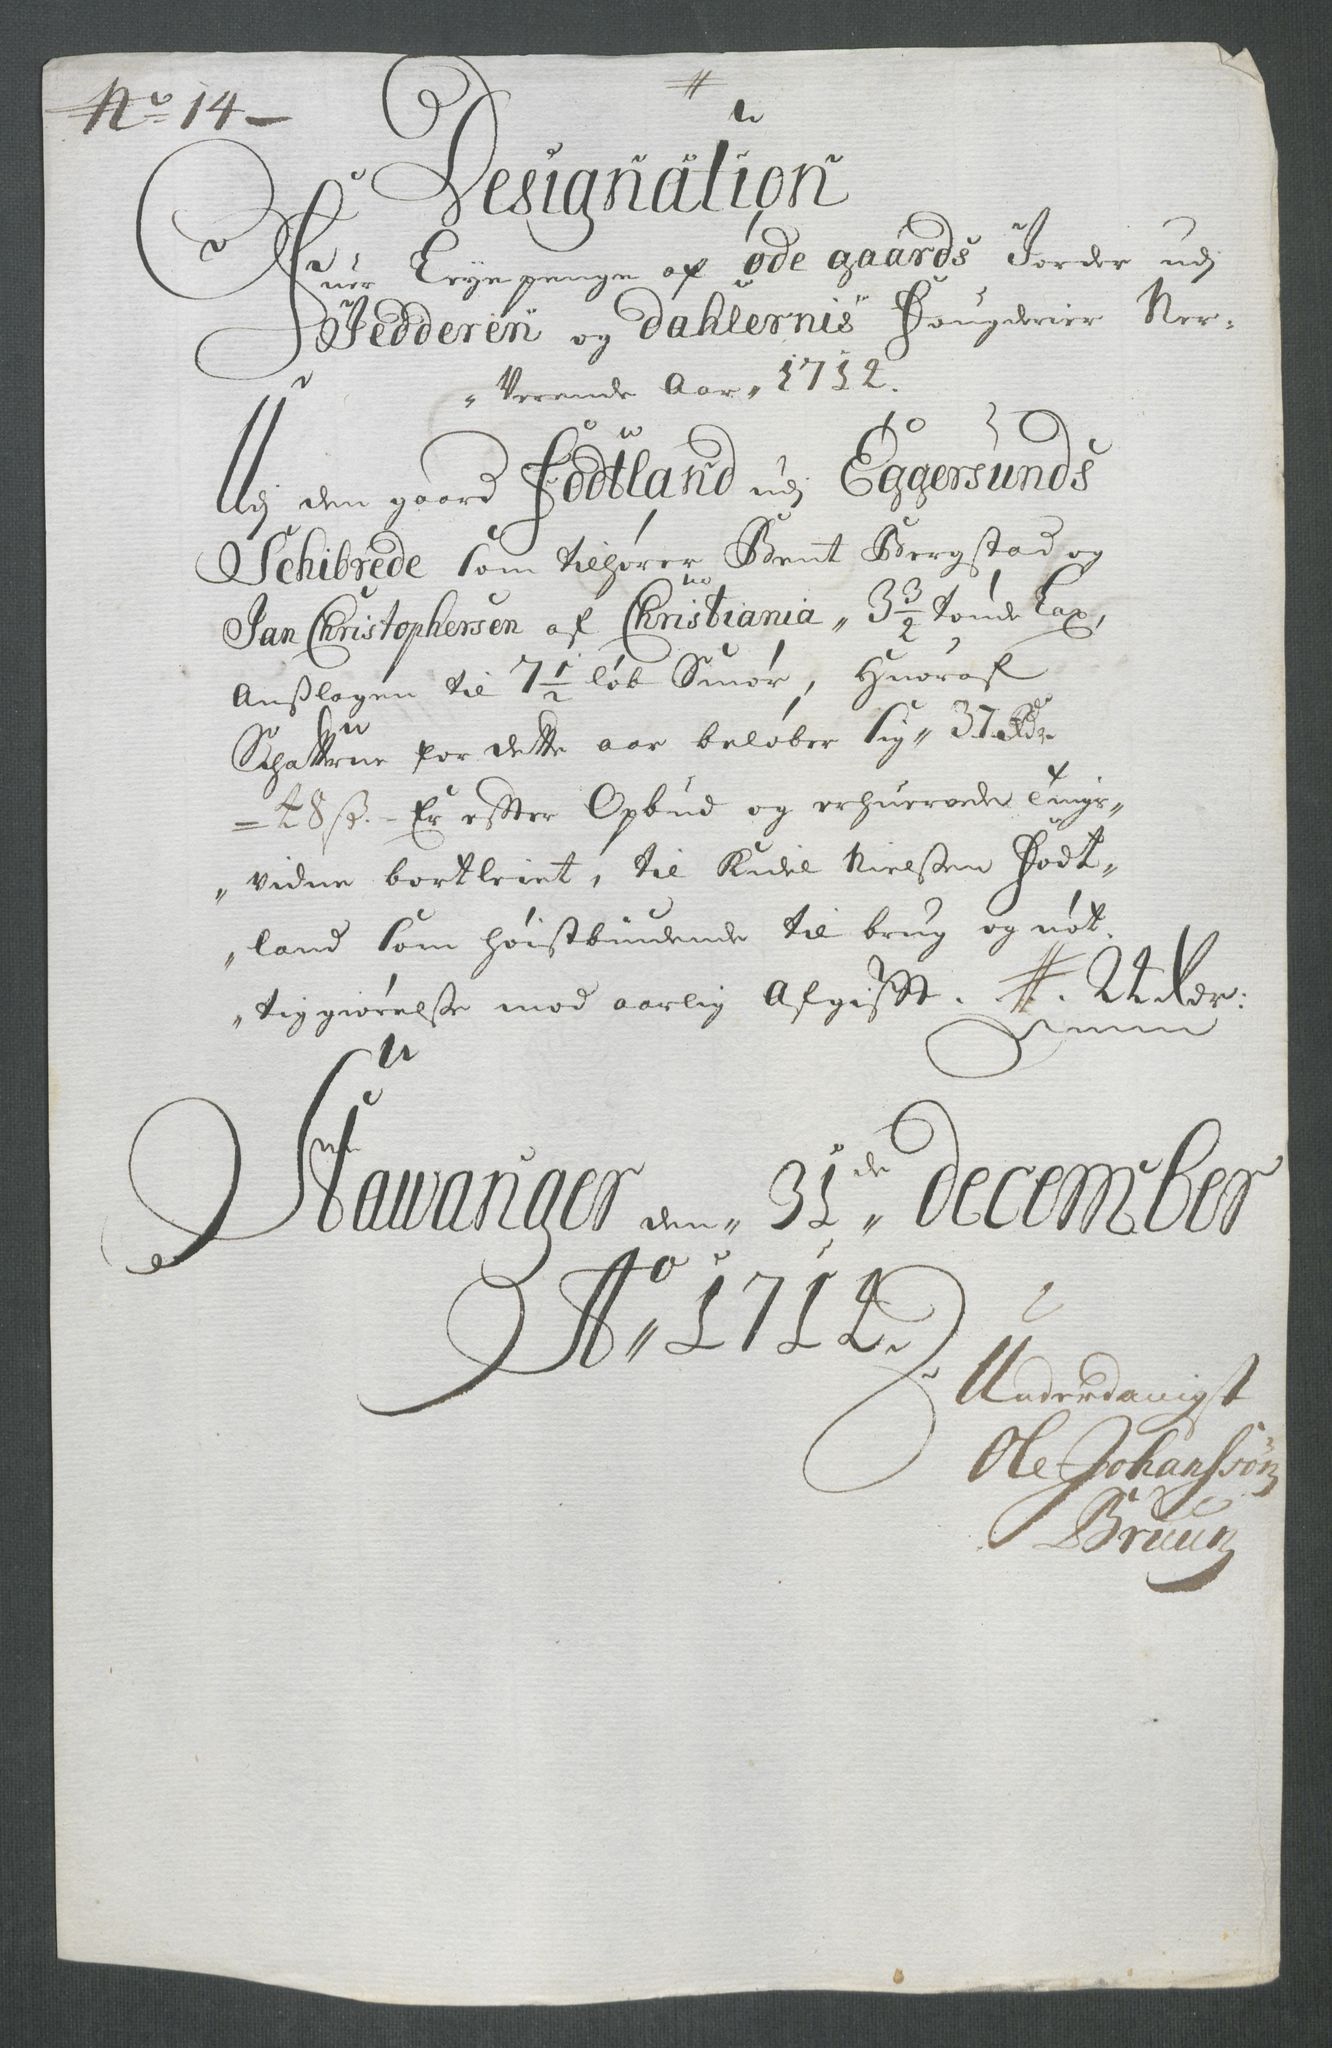 No 14
Designation
Ofuer Leyepenge af øde gaards Jorder udj
Jedderen og Dahlernis Fougderier Ner-
„Verende Aar„ 1712.
Udj den gaard Fodtland udj Eggersunds
Schibrede som tilhører Bent Bergstad og
Jan Christophersen af Christiania„ 3 3/2 tønde Lax,
Anßlagen til 7 1/2 løb Smør, Huoraf
Schatterne for dette aar beløber sig„ 37 Rdr
= 48 ß. - Er effter Opbud og erhuervede Tings„
„vidne bortleiet, til Kidel Nielßen Fodt„
„land som høistbiudende til brug og nøt.
„tiggiørelße mod aarlig Afgifft. #. 22 Rdr:
Stawanger den„ 31de„ December
Ao„ 1712.
Underdanigst
Ole Johanssøn
Bruun